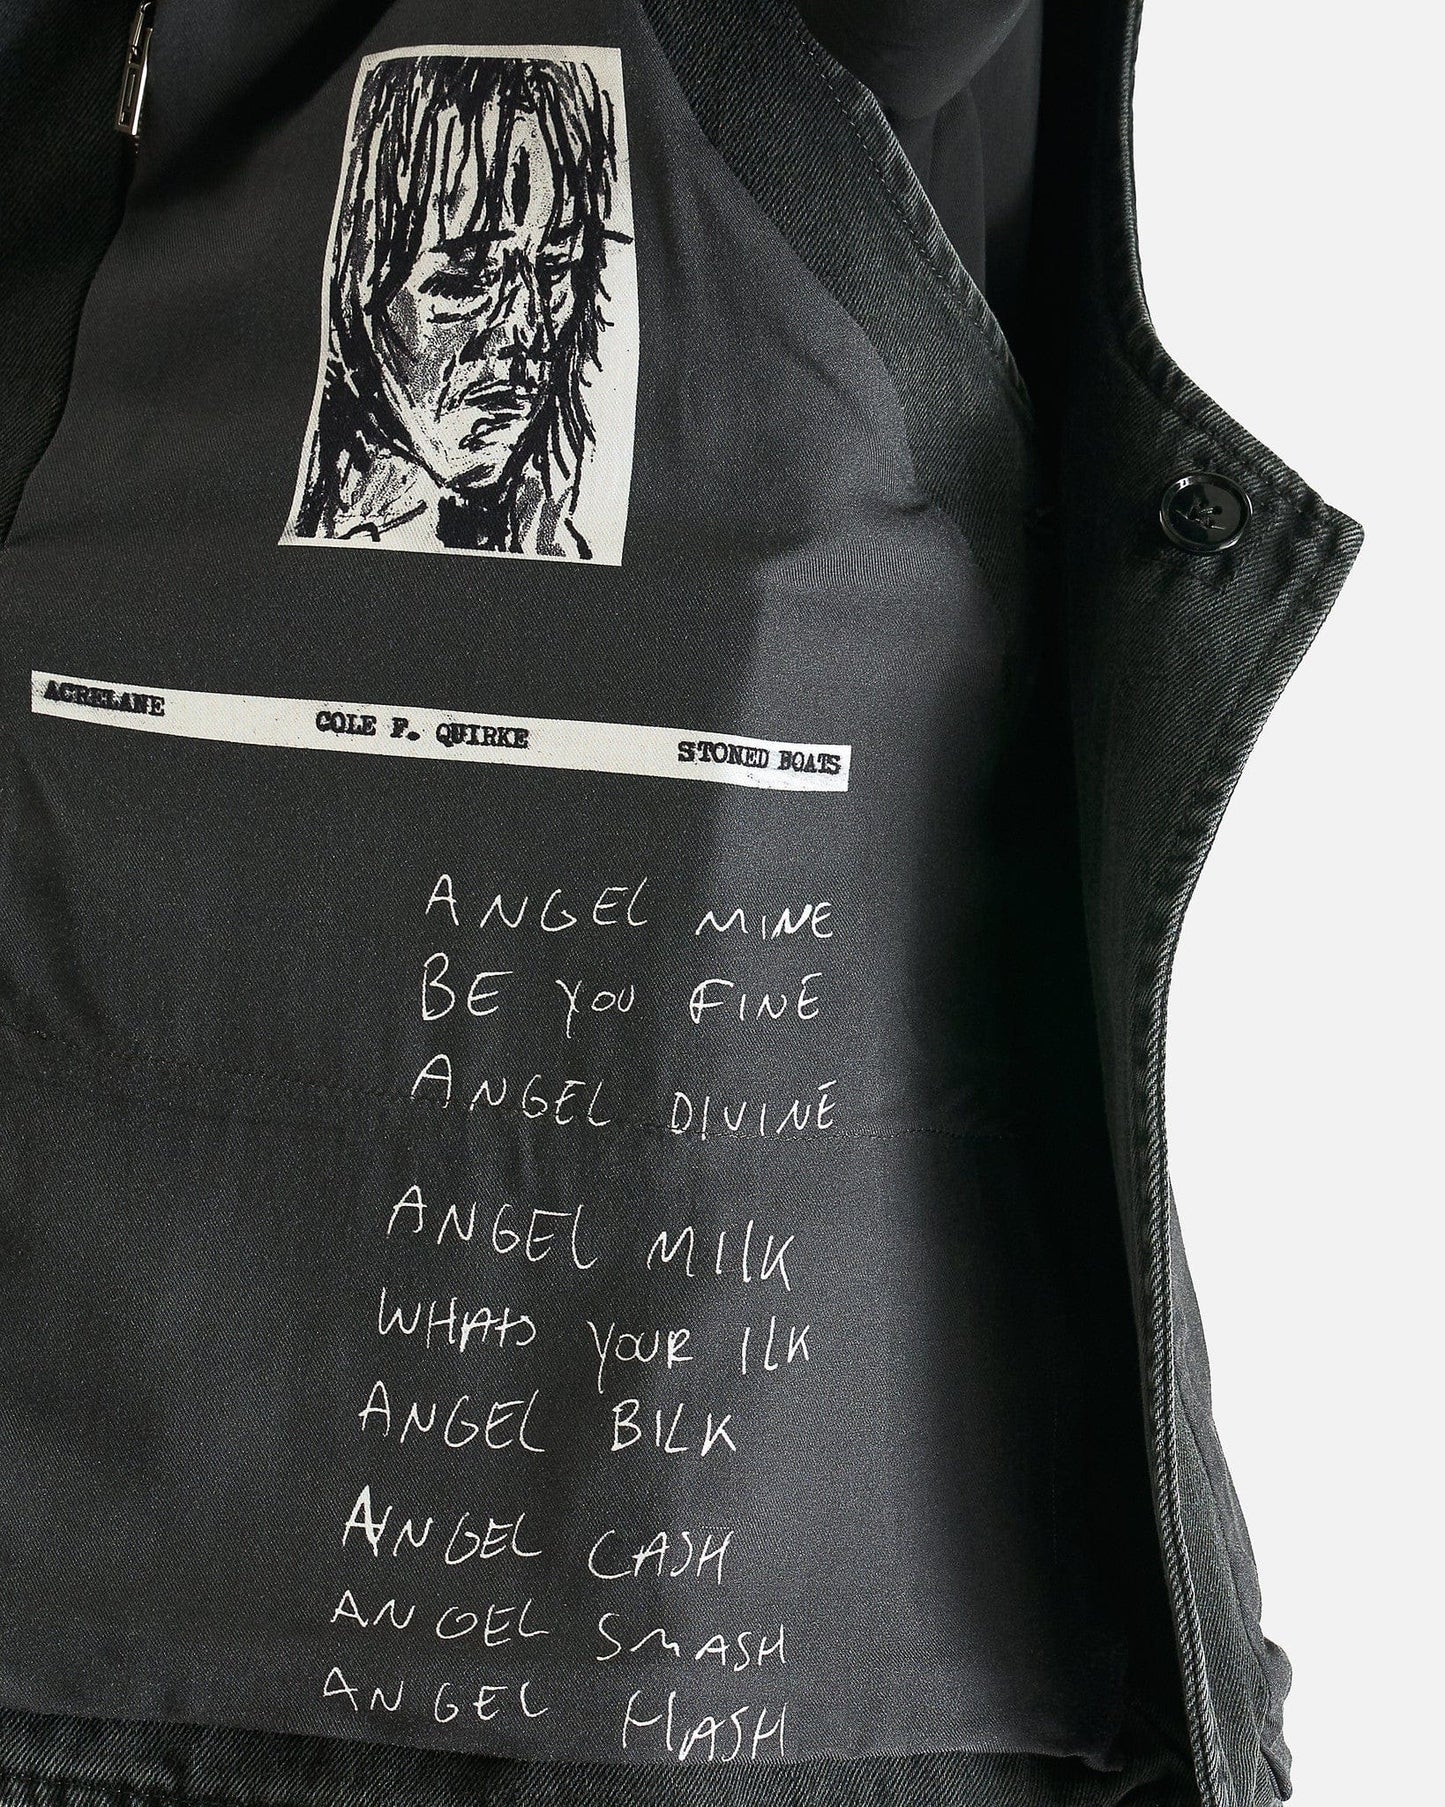 ACRELANE COLE F. QUIRKE STONED BOATS
ANGEL MINE
BE YOU FINE
ANGEL DIVINE
ANGEL MILK
WHATS YOUR ILK
ANGEL BILK
ANGEL CASH
ANGEL SMASH
ANGEL HASH